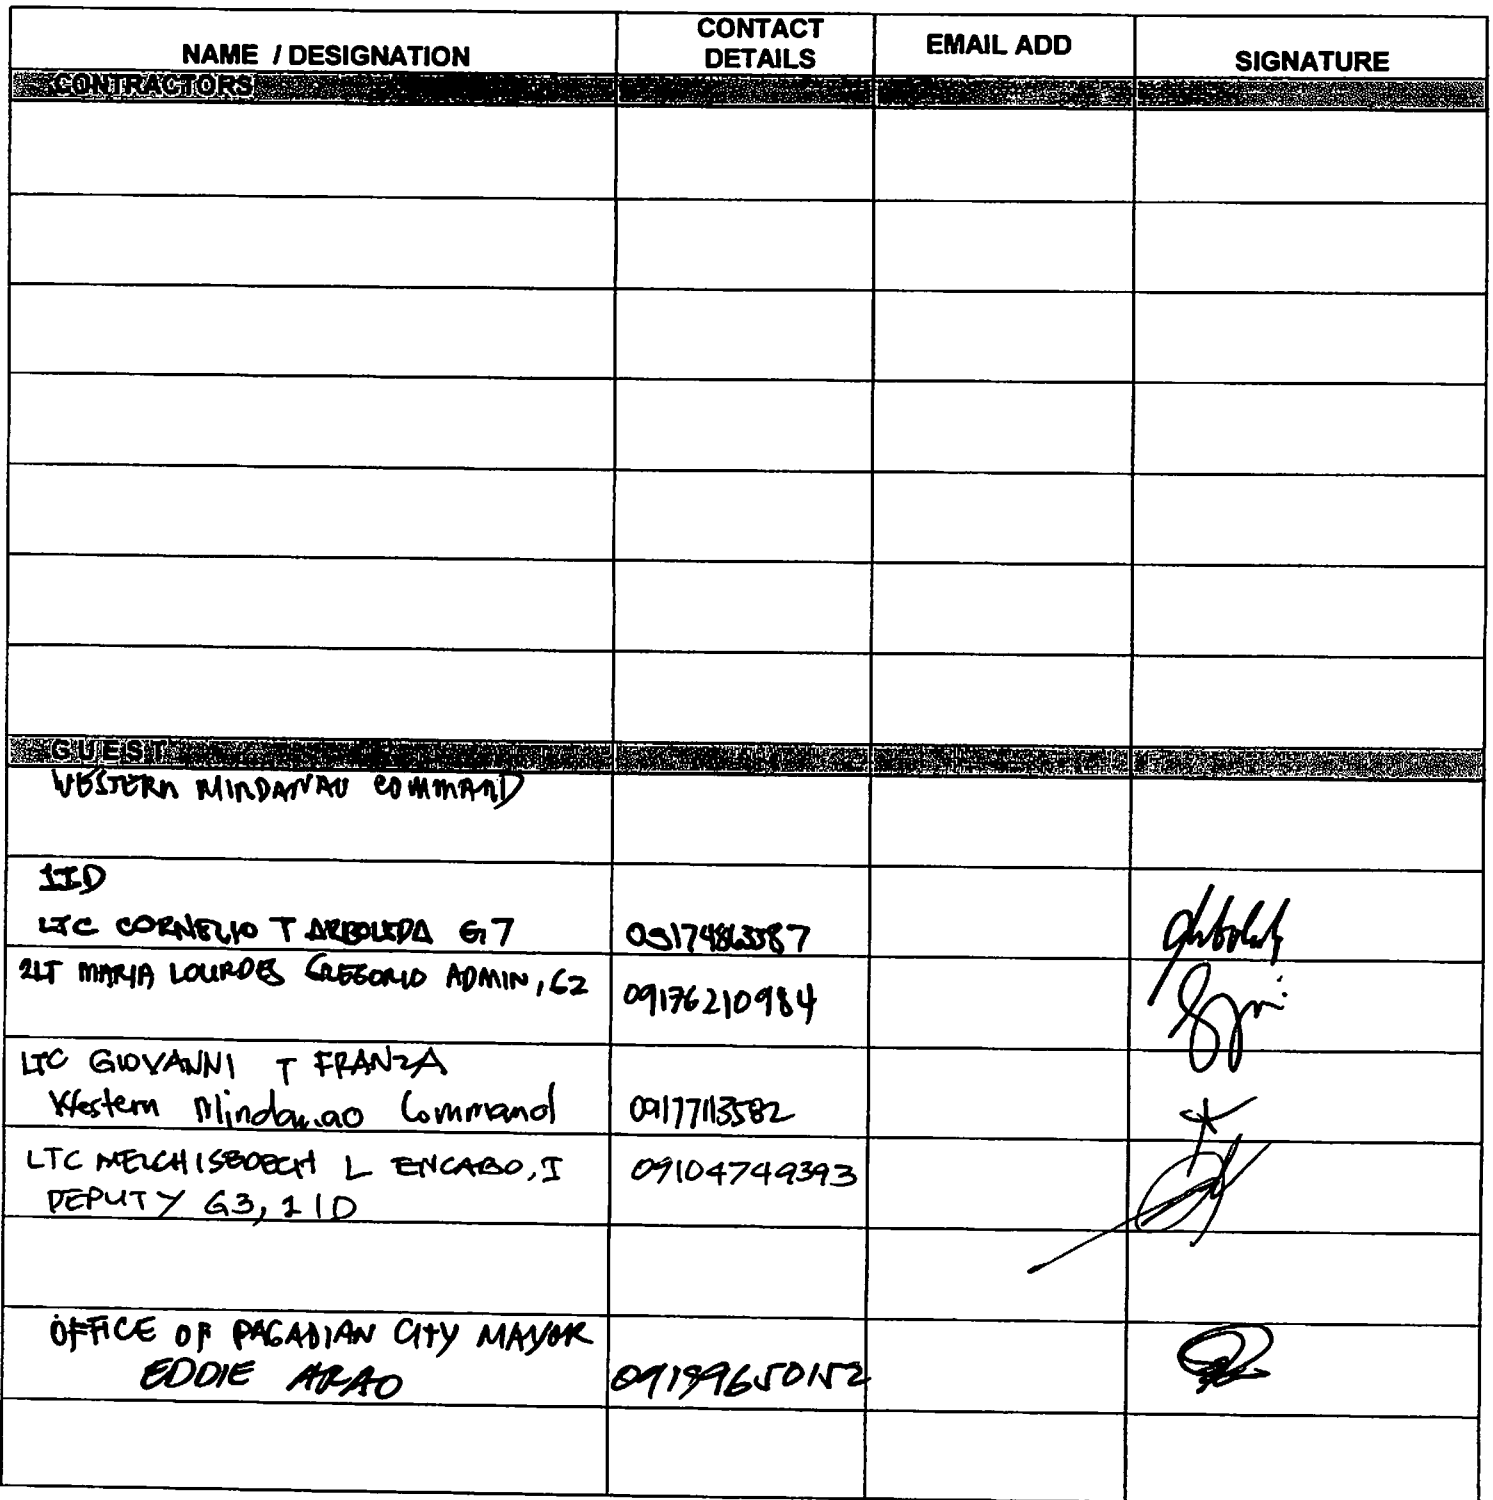 NAME / DESIGNATION
CONTACT DETAILS
EMAIL ADD
SIGNATURE
CONTRACTORS
GUEST
WESTERN MINDANAO COMMAND
1ID
LTC CORNELIO T ARBOLEDA G7 09174863387
2LT MARIA LOURDES GREGORIO ADMIN, G2 09176210984
LTC GIOVANNI T FRANZA
Western Mindanao Command 09177113582
LTC MELCHISEDECH L ENCABO, I 09104749393
DEPUTY G3, 1ID
OFFICE OF PAGADIAN CITY MAYOR
EDDIE ARAO 09199650152